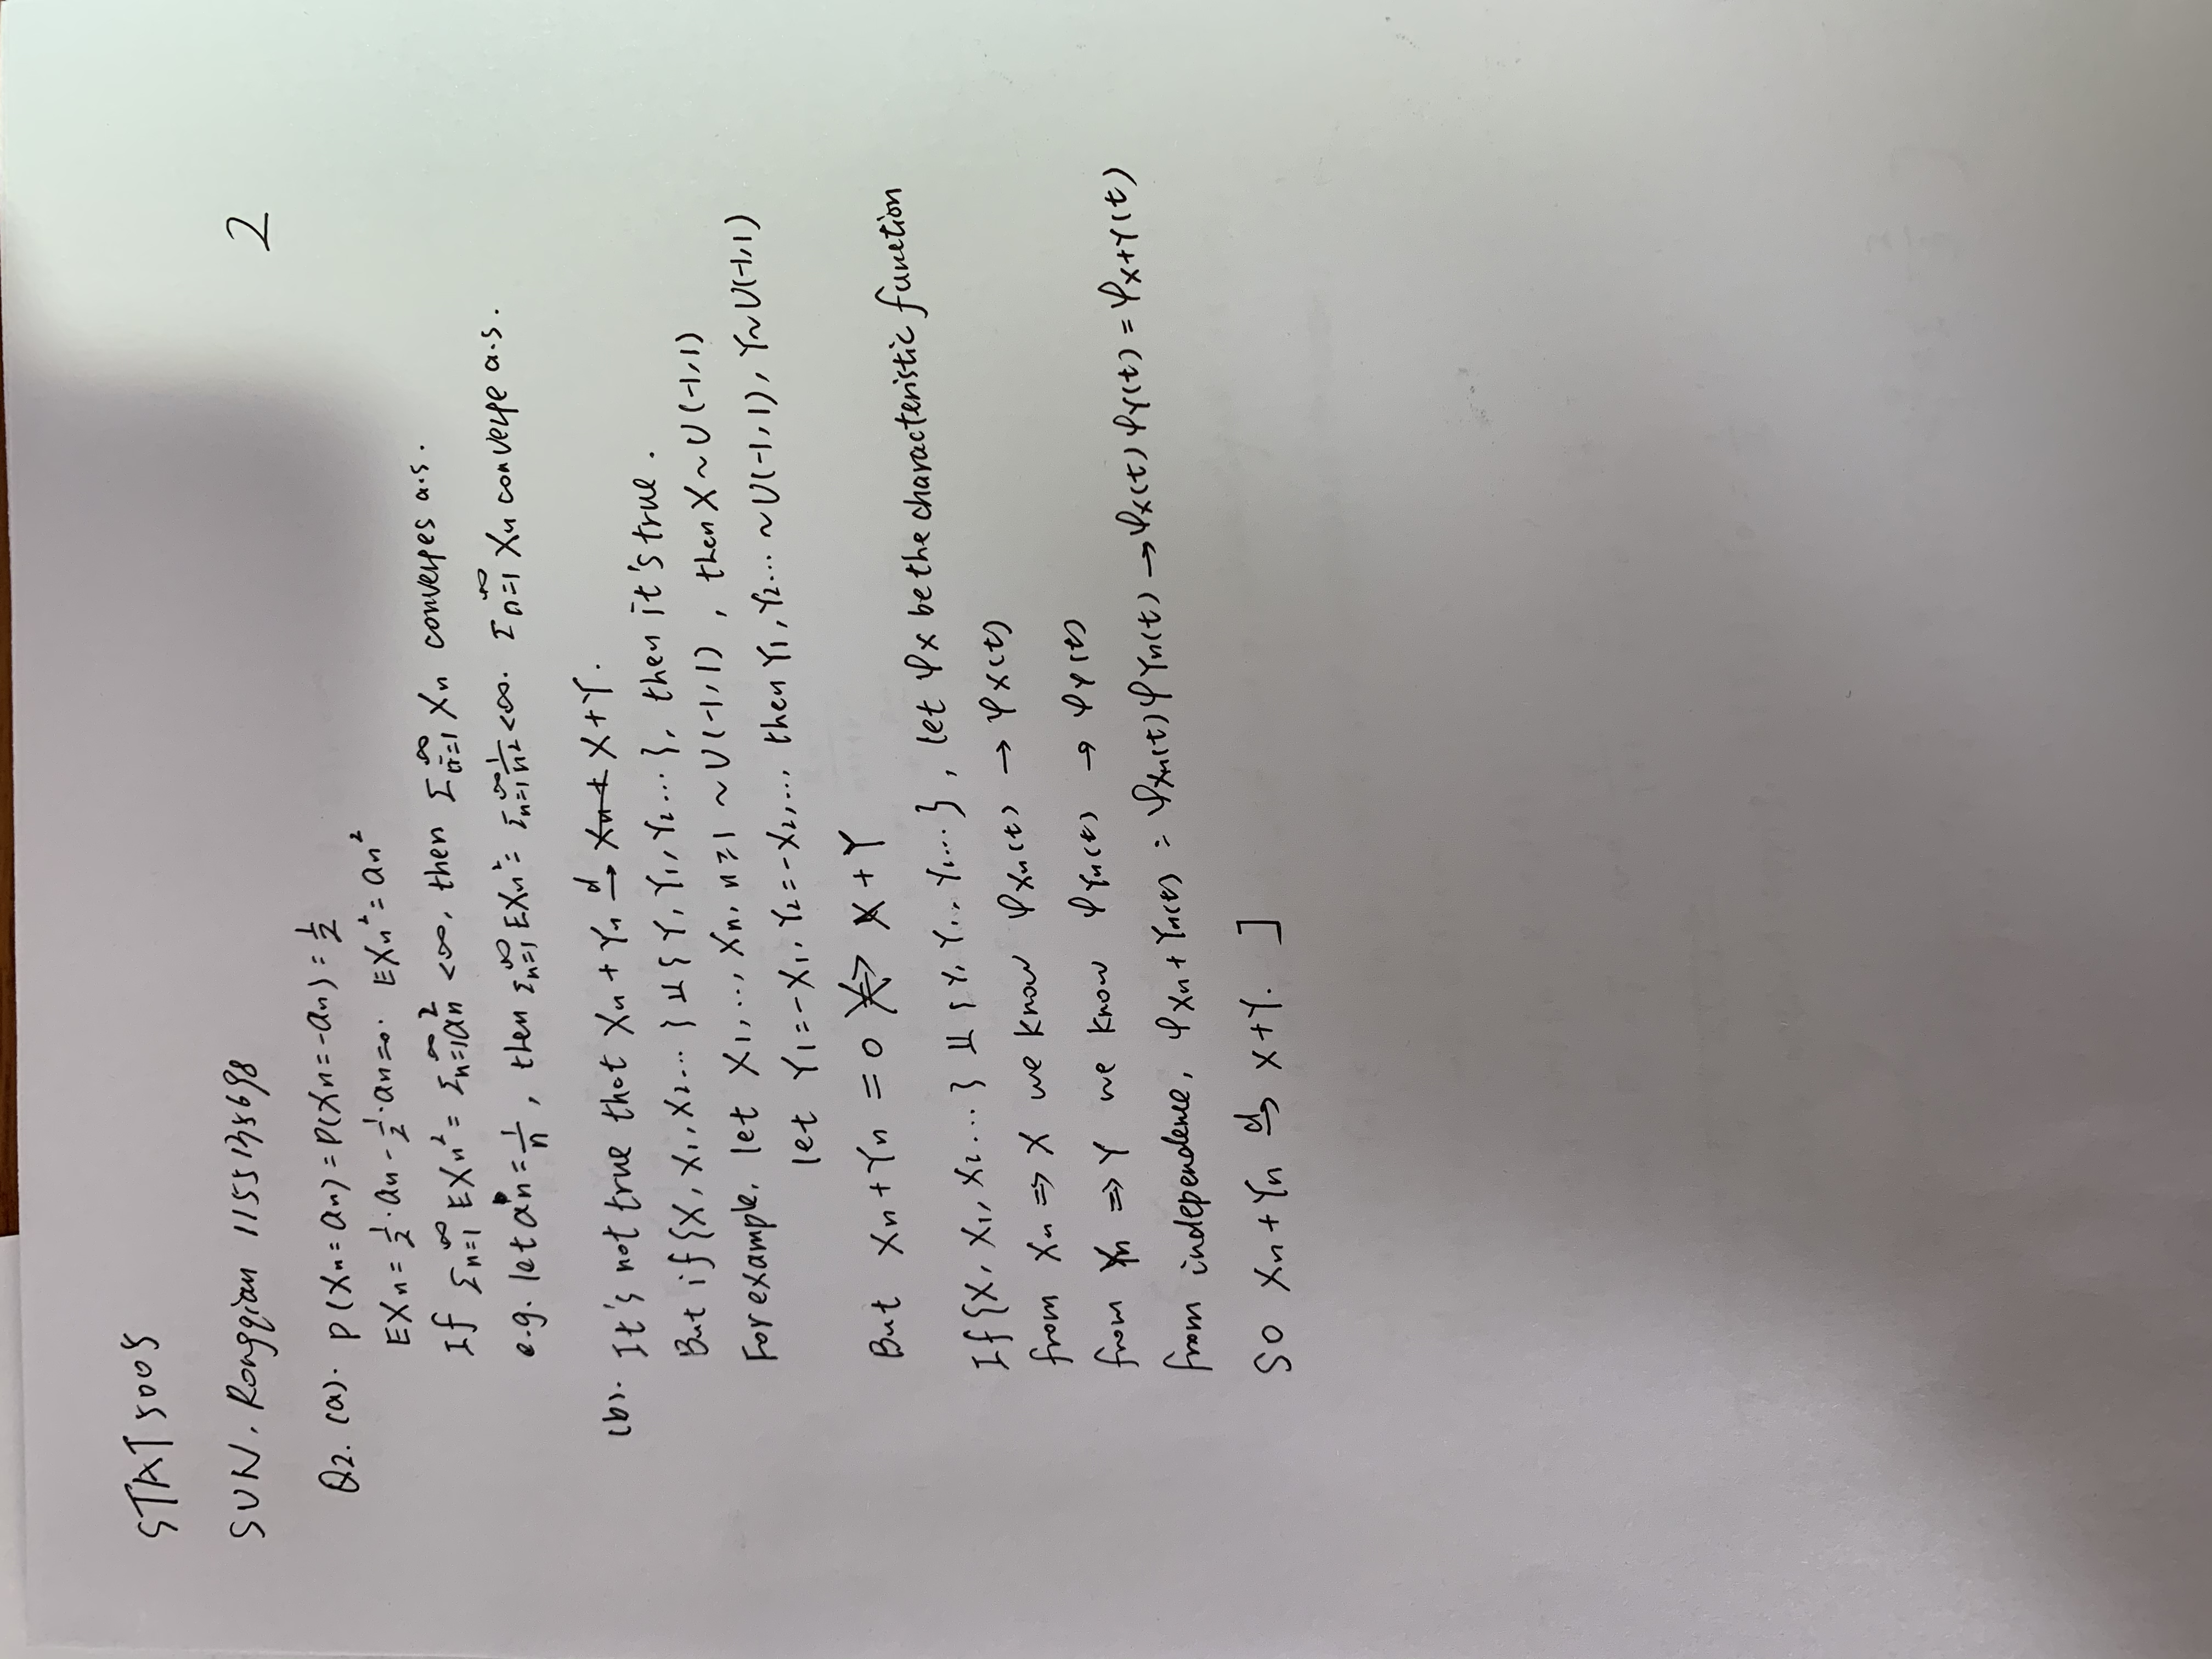 STAT 5005
SUN, Rongqian 1155135698
2
Q2. (a). P(Xn = an) = P(Xn = -an) = 1/2
EXn = 1/2 · an - 1/2 · an = 0. EXn² = an²
If Σn=1^∞ EXn² = Σn=1^∞ an² < ∞, then Σn=1^∞ Xn converges a.s.
e.g. let an = 1/n, then Σn=1^∞ EXn² = Σn=1^∞ 1/n² < ∞. Σn=1^∞ Xn converge a.s.
(b). It's not true that Xn + Yn →d X + Y.
But if {X, X1, X2 ... } ⫫ { Y, Y1, Y2 ... }, then it's true.
For example, let X1, ..., Xn, n ≥ 1 ~ U(-1, 1), then X ~ U(-1, 1)
let Y1 = -X1, Y2 = -X2, ... then Y1, Y2 ... ~ U(-1, 1), Y ~ U(-1, 1)
But Xn + Yn = 0 ⇏ X + Y
If {X, X1, X2 ... } ⫫ { Y, Y1, Y2 ... }, let φX be the characteristic function
from Xn ⇒ X we know φXn(t) → φX(t)
from Yn ⇒ Y we know φYn(t) → φY(t)
from independence, φXn+Yn(t) = φXn(t) φYn(t) → φX(t) φY(t) = φX+Y(t)
So Xn + Yn →d X + Y. ]